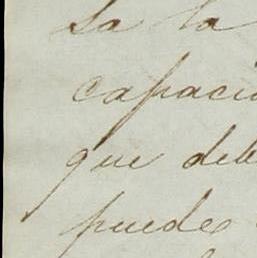 sa la
capaci
que deb
puede